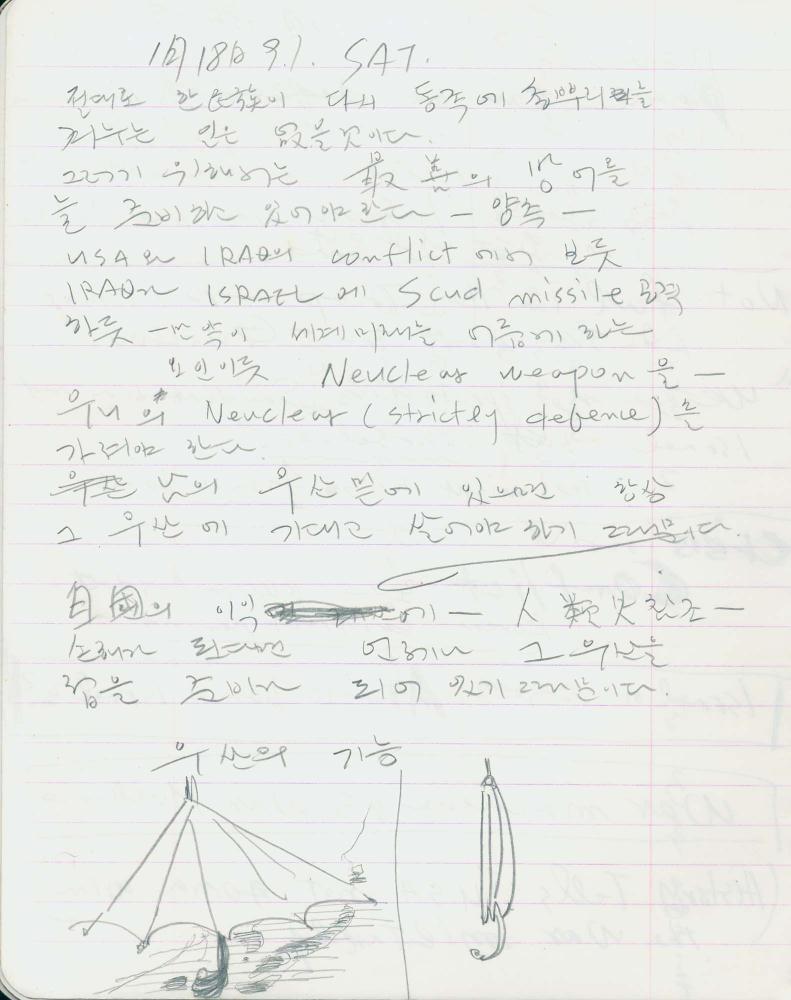 1月18日 91. SAT.
절대로 한民族이 다시 동족에 총뿌리를
겨누는 일은 없을것이다.
그러기 위해서는 最善의 방어를
늘 준비하고 있어야 한다 — 양측 —
USA와 IRAQ의 conflict에서 보듯
IRAQ가 ISRAEL에 Scud missile 공격
하듯 세계미래를 어둡게 하는
요인이듯 Neuclear weapon을 —
우리의 Neuclear (strictly defence)를
가려야 한다.
남의 우산밑에 있으면 항상
그 우산에 기대고 살어야 하기 때문이다.
自國의 이익 에 — 人類 —
손해가 된다면 언제나 그 우산을
접을 준비가 되어 있기 때문이다.
우산의 기능